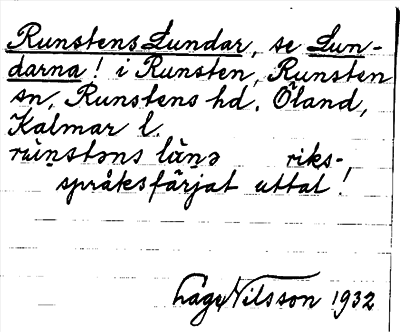 Runstens Lundar, se Lun-
darna! i Runsten, Runsten
sn, Runstens hd. Öland,
Kalmar l.
runstəns lanə riks-,
språksfärjat uttal!
Låge Nilsson 1932